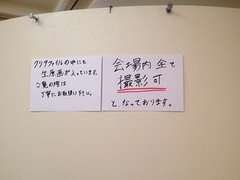 クリアファイルの中にも
生原画が入っています。
ご覧の際は
丁寧にお取扱い下さい。
会場内全て
撮影可
となっております。